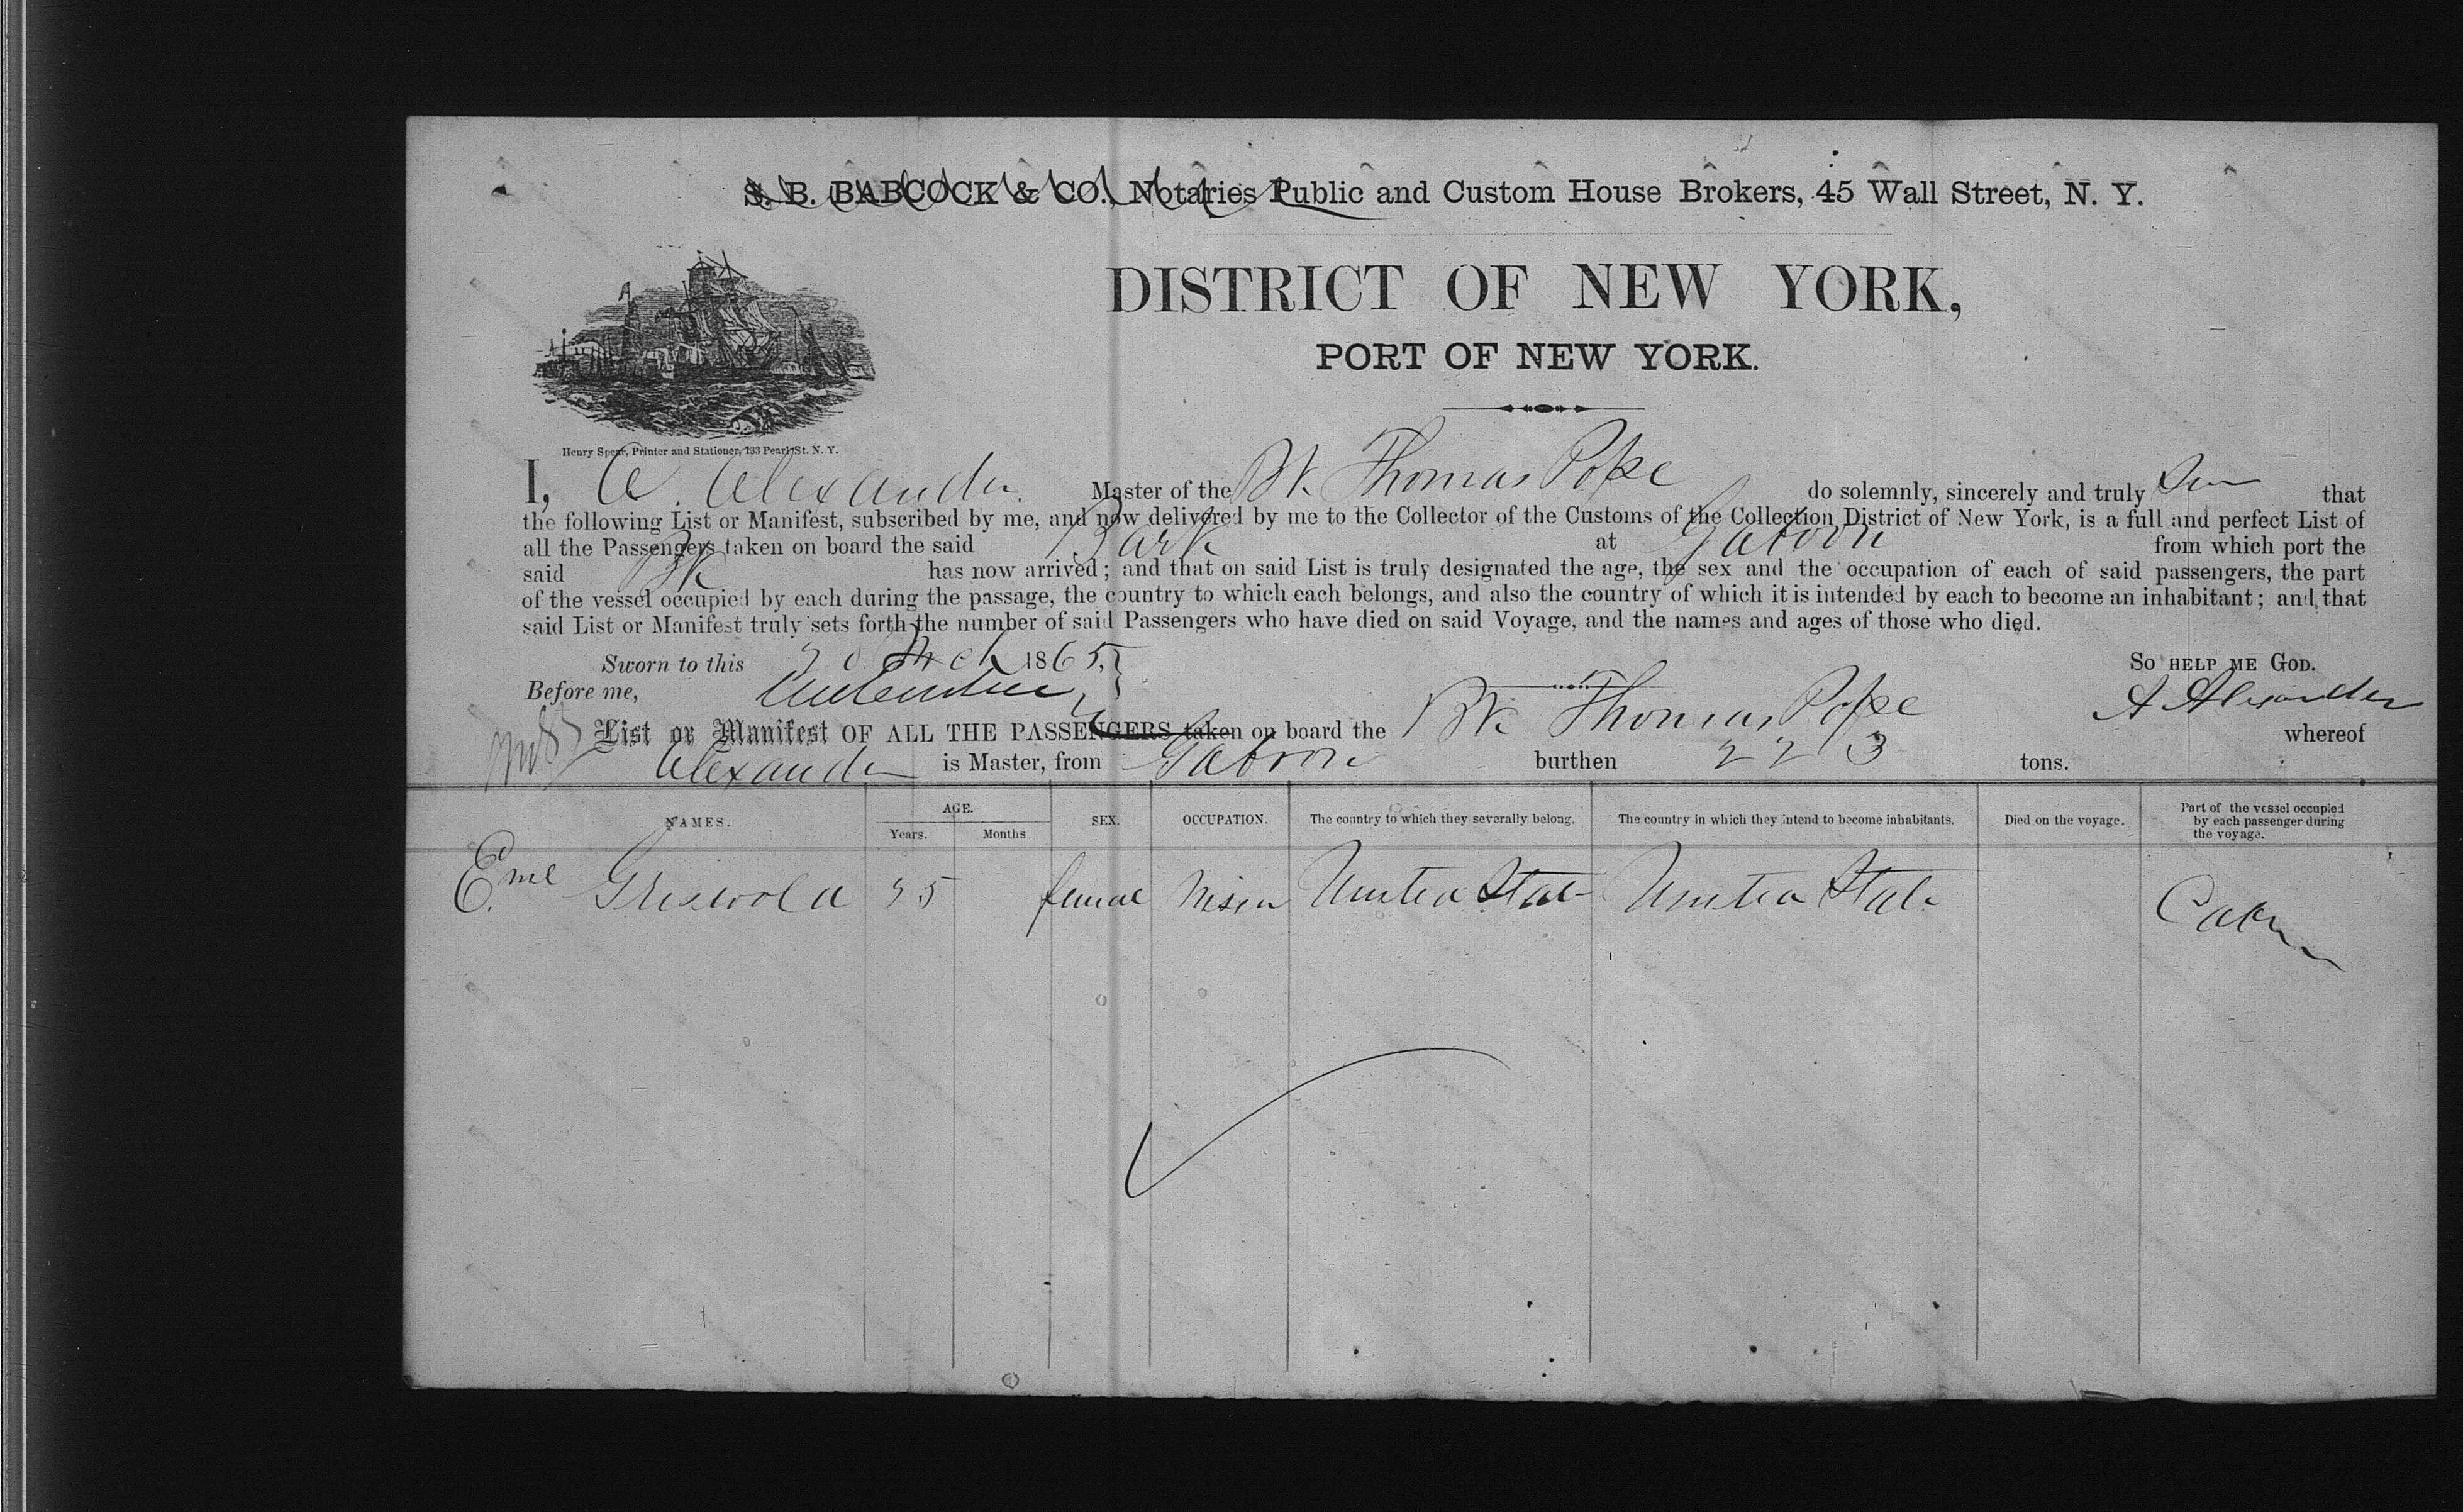 S. B. BABCOCK & CO., Notaries Public and Custom House Brokers, 45 Wall Street, N. Y.
DISTRICT OF NEW YORK,
PORT OF NEW YORK.
Henry Spear, Printer and Stationer, 133 Pearl St. N. Y.
I, A. Alexander Master of the Bk Thomas Pope do solemnly, sincerely and truly that
the following List or Manifest, subscribed by me, and now delivered by me to the Collector of the Customs of the Collection District of New York, is a full and perfect List of
all the Passengers taken on board the said Bark at Gaboon from which port the
said Bk has now arrived; and that on said List is truly designated the age, the sex and the occupation of each of said passengers, the part
of the vessel occupied by each during the passage, the country to which each belongs, and also the country of which it is intended by each to become an inhabitant; and that
said List or Manifest truly sets forth the number of said Passengers who have died on said Voyage, and the names and ages of those who died.
Sworn to this 20 Mch 1865, SO HELP ME GOD.
Before me, A Alexander
List or Manifest OF ALL THE PASSENGERS taken on board the Bk Thomas Pope whereof
Alexander is Master, from Gaboon burthen 223 tons.
NAMES. AGE. Years. Months SEX. OCCUPATION. The country to which they severally belong. The country in which they intend to become inhabitants. Died on the voyage. Part of the vessel occupied by each passenger during the voyage.
Griswold female United State United State